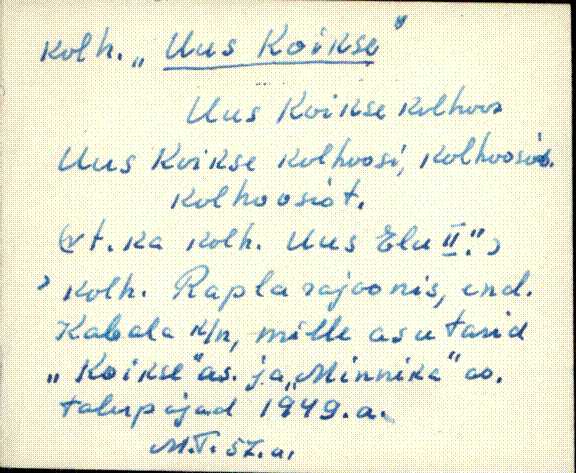 kolh. „Uus Koikse"
Uus Koikse kolhoos
Uus Koikse kolhoosi, kolhoosis.
kolhoosist.
(vt. ka kolh. Uus Elu II.")
› kolh. Rapla rajoonis, end.
Kabala k/n, mille asutasid
„Koikse" as. ja „Minnika" as.
talupojad 1949.a.
M.T. 57.a.